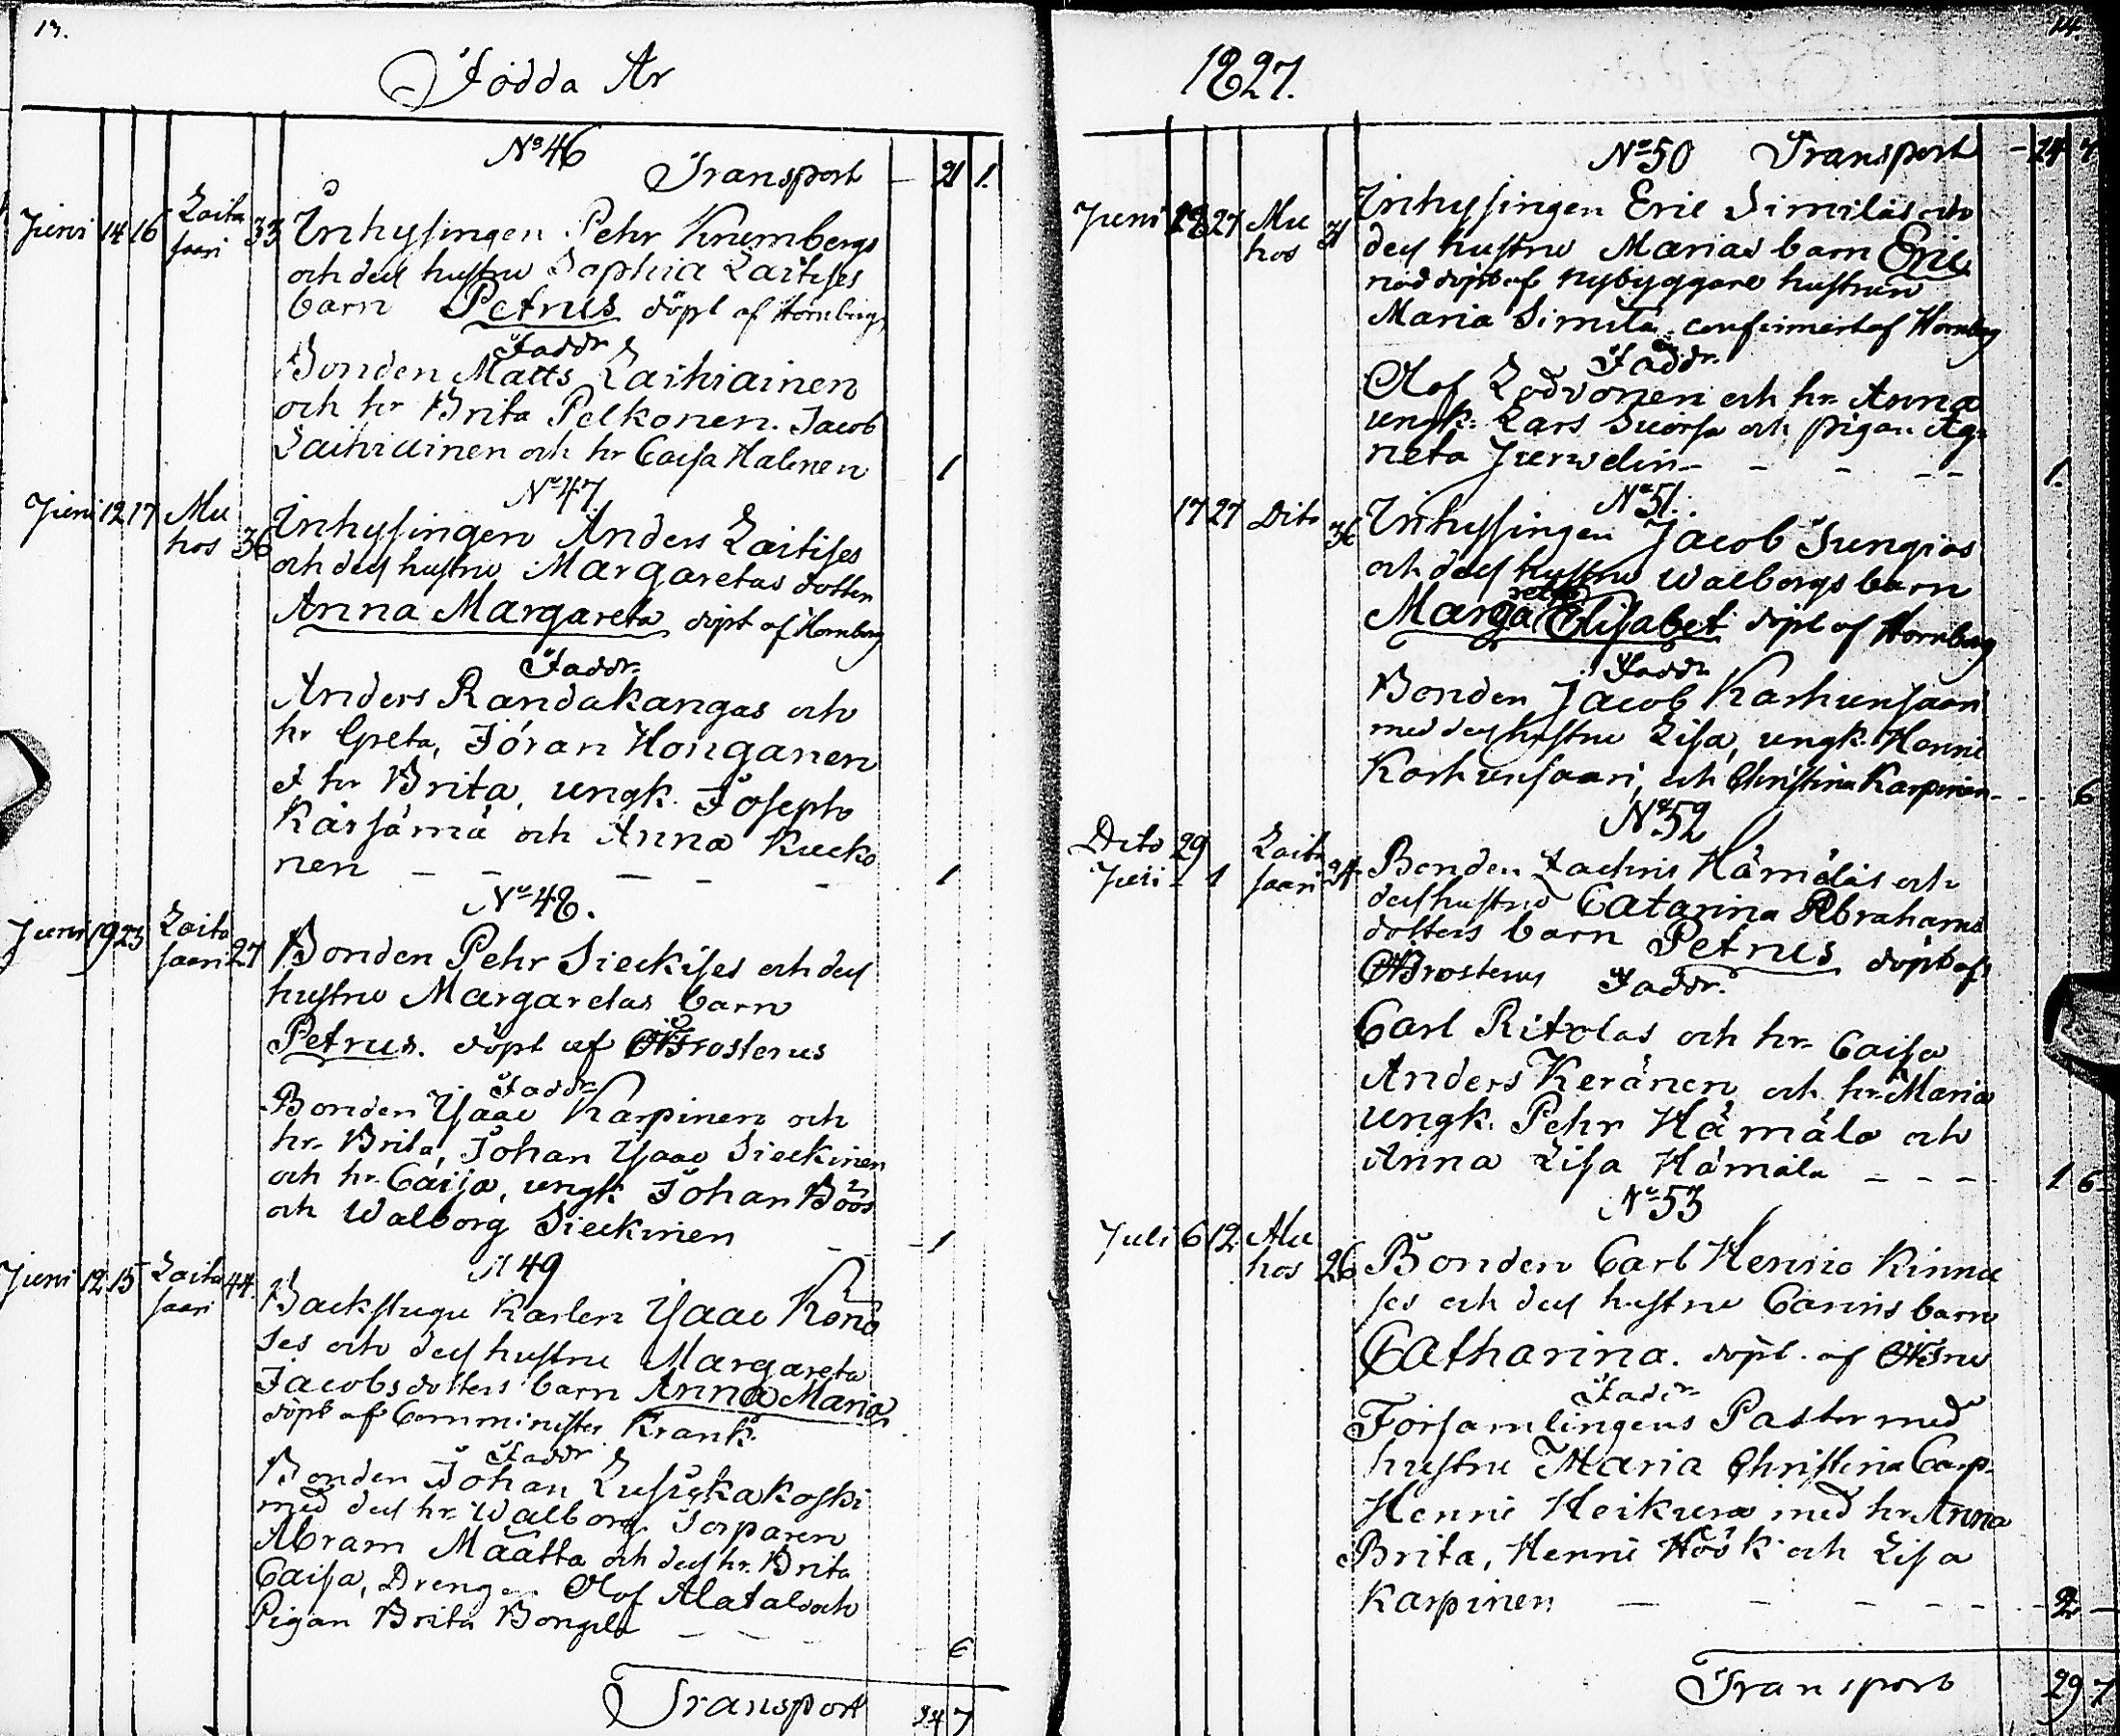 13.
Födda År
No 46
Transport - 21 1.
Juni 14 16 Laitasaari 33 Inhysingen Pehr Krumbergs
och dess hustru Sophia Laitises
barn Petrus döpt af Hornborg
Faddr
Bonden Matts Laihiainen
och hr Brita Pelkonen. Jacob
Laihiainen och hr Caisa Halinen 1
No 47
Juni 12 17 Muhos 36 Inhysingen Anders Laitises
och dess hustru Margaretas dotter
Anna Margareta döpt af Hornborg
Faddr
Anders Randakangas och
hr Greta, Jöran Honganen
et hr Brita, ungk. Joseph
Kärsämä och Anna Kucko
nen - - - - - 1
No 48.
Juni 19 23 Laitasaari 27 Bonden Pehr Sieckises och dess
hustru Margaretas barn
Petrus. döpt af Frosterus
Faddr
Bonden Isaac Karpinen och
hr. Brita, Johan Isaac Sieckinen
och hr. Caisa, ungk Johan Böös
och Walborg Sieckinen - - - 1
N 49
Juni 12 15 Laitasaari 44. Backstugu Karlen Isaac Kono
ses och dess hustru Margareta
Jacobsdotters barn Anna Maria
döpt af Comminister Krank.
Faddr
Bonden Johan Lusickakoski
med dess hr. Walborg. Torparen
Abram Määtta och dess hr. Brita
Caisa, Drengen Olof Alatalo och
Pigan Brita Bongila - - - - 6
Transport 24 7
14.
1827.
No 50 Transport - 24 7
Juni 22 27 Muhos 31 Inhysingen Eric Similäs och
dess hustru Marias barn Eric
nöddöpt af nybyggare hustrun
Maria Similä. confirmert af Hornborg
Faddr.
Olof Lodvonen och hr. Anna
ungk. Lars Suorsa och pigan Ag
neta Jurvelin - - - - - 1.
No 51.
17 27 Dito 36 Inhysingen Jacob Jungias
och dess hustru Walborgs barn
Margareta Elisabet döpt af Hornborg
Faddr
Bonden Jacob Karhunsaari
med dess hustru Lisa, ungk. Henric
Karhunsaari, och Christina Karpinen - - 6
No 52
Dito 29
Juli - 1 Laitasaari 24 Bonden Zachris Hämäläs och
dess hustru Catarina Abrahams
dotters barn Petrus döpt af
Frosterus Faddr.
Carl Ritolas och hr. Caisa
Anders Keränen och hr. Maria
ungk. Pehr Hämälä och
Anna Lisa Hämälä - - - - 1 6
No 53
Juli 6 12. Muhos 26 Bonden Carl Henric Kinnu
ses och dess hustru Carins barn
Catharina. döpt. af
Faddr
Församlingens Pastor med
hustru Maria Christina Carp.
Henric Heikura med hr. Anna
Brita, Henric Höök och Lisa
Karpinen - - - - - 2 -
Transport 29 7